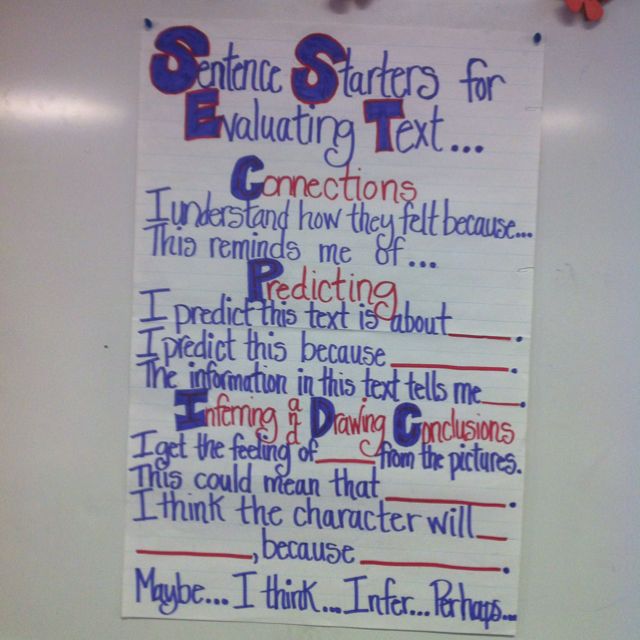 Sentence Starters for
Evaluating Text...
Connections
I understand how they felt because...
This reminds me of...
Predicting
I predict this text is about____.
I predict this because ________.
The information in this text tells me___.
Inferring and Drawing Conclusions
I get the feeling of____ from the pictures.
This could mean that ________.
I think the character will__
________, because ________.
Maybe... I think... Infer... Perhaps...